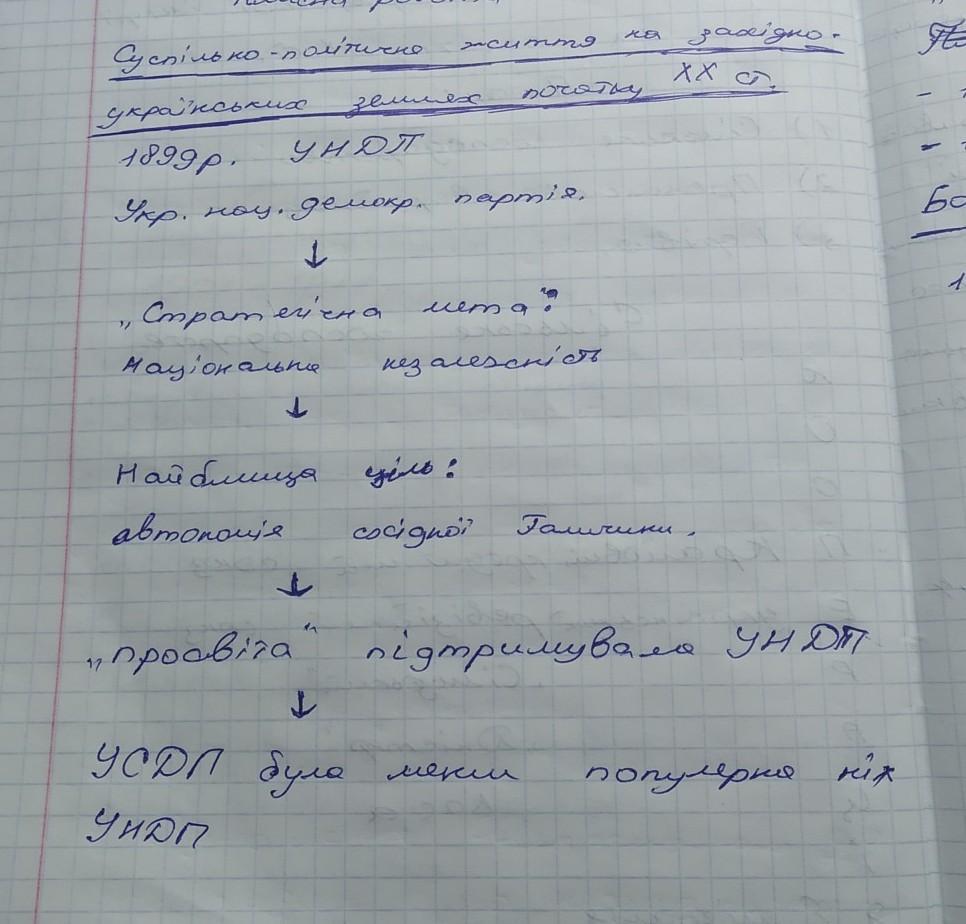 Суспільно-політичне життя на західно-
українських землях початку XX ст.
1899р. УНДП
Укр. нац. демокр. партія.
↓
„Стратегічна мета":
Національна незалежність
↓
Найблища ціль:
автономія східної Галичини.
↓
„просвіта" підтримувала УНДП
↓
УСДП була менш популярна ніж
УНДП